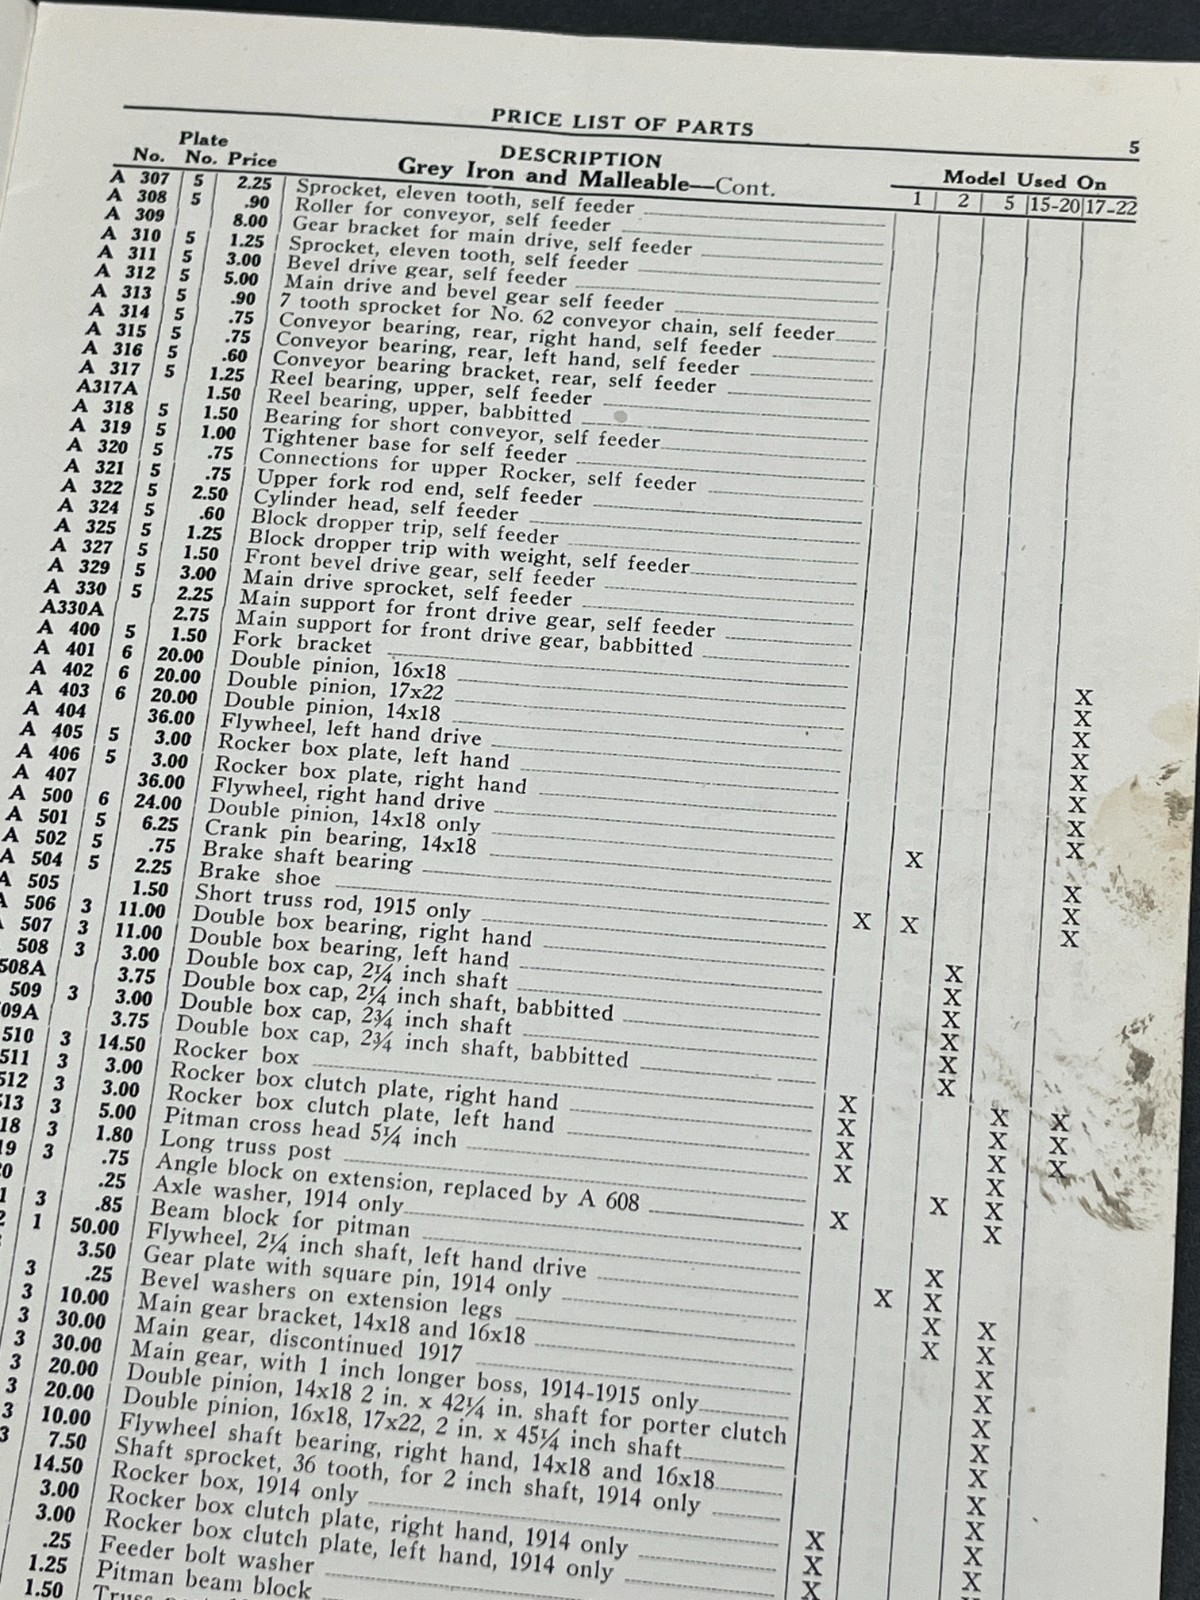 PRICE LIST OF PARTS 5
No. Plate No. Price DESCRIPTION Model Used On
Grey Iron and Malleable—Cont. 1 2 5 15-20 17-22
A 307 5 2.25 Sprocket, eleven tooth, self feeder
A 308 5 .90 Roller for conveyor, self feeder
A 309 8.00 Gear bracket for main drive, self feeder
A 310 5 1.25 Sprocket, eleven tooth, self feeder
A 311 5 3.00 Bevel drive gear, self feeder
A 312 5 5.00 Main drive and bevel gear self feeder
A 313 5 .90 7 tooth sprocket for No. 62 conveyor chain, self feeder
A 314 5 .75 Conveyor bearing, rear, right hand, self feeder
A 315 5 .75 Conveyor bearing, rear, left hand, self feeder
A 316 5 .60 Conveyor bearing bracket, rear, self feeder
A 317 5 1.25 Reel bearing, upper, self feeder
A317A 1.50 Reel bearing, upper, babbitted
A 318 5 1.50 Bearing for short conveyor, self feeder
A 319 5 1.00 Tightener base for self feeder
A 320 5 .75 Connections for upper Rocker, self feeder
A 321 5 .75 Upper fork rod end, self feeder
A 322 5 2.50 Cylinder head, self feeder
A 324 5 .60 Block dropper trip, self feeder
A 325 5 1.25 Block dropper trip with weight, self feeder
A 327 5 1.50 Front bevel drive gear, self feeder
A 329 5 3.00 Main drive sprocket, self feeder
A 330 5 2.25 Main support for front drive gear, self feeder
A330A 2.75 Main support for front drive gear, babbitted
A 400 5 1.50 Fork bracket X
A 401 6 20.00 Double pinion, 16x18 X
A 402 6 20.00 Double pinion, 17x22 X
A 403 6 20.00 Double pinion, 14x18 X
A 404 36.00 Flywheel, left hand drive X
A 405 5 3.00 Rocker box plate, left hand X
A 406 5 3.00 Rocker box plate, right hand X
A 407 36.00 Flywheel, right hand drive X
A 500 6 24.00 Double pinion, 14x18 only X
A 501 5 6.25 Crank pin bearing, 14x18 X
A 502 5 .75 Brake shaft bearing X
A 504 5 2.25 Brake shoe X X X
A 505 1.50 Short truss rod, 1915 only
A 506 3 11.00 Double box bearing, right hand X
A 507 3 11.00 Double box bearing, left hand X
508 3 3.00 Double box cap, 2¼ inch shaft X
508A 3.75 Double box cap, 2¼ inch shaft, babbitted X
509 3 3.00 Double box cap, 2¾ inch shaft X
09A 3.75 Double box cap, 2¾ inch shaft, babbitted X
510 3 14.50 Rocker box X X X
511 3 3.00 Rocker box clutch plate, right hand X X X
512 3 3.00 Rocker box clutch plate, left hand X X X
13 3 5.00 Pitman cross head 5¼ inch X X
18 3 1.80 Long truss post X
19 3 .75 Angle block on extension, replaced by A 608 X X X
0 .25 Axle washer, 1914 only
1 3 .85 Beam block for pitman X
2 1 50.00 Flywheel, 2¼ inch shaft, left hand drive X X
3.50 Gear plate with square pin, 1914 only X X
3 .25 Bevel washers on extension legs X X
3 10.00 Main gear bracket, 14x18 and 16x18 X
3 30.00 Main gear, discontinued 1917 X
3 30.00 Main gear, with 1 inch longer boss, 1914-1915 only X
3 20.00 Double pinion, 14x18 2 in. x 42¼ in. shaft for porter clutch X
3 20.00 Double pinion, 16x18, 17x22, 2 in. x 45¼ inch shaft X
3 10.00 Flywheel shaft bearing, right hand, 14x18 and 16x18 X
3 7.50 Shaft sprocket, 36 tooth, for 2 inch shaft, 1914 only X
14.50 Rocker box, 1914 only X
3.00 Rocker box clutch plate, right hand, 1914 only X X
3.00 Rocker box clutch plate, left hand, 1914 only X X
.25 Feeder bolt washer X
1.25 Pitman beam block
1.50